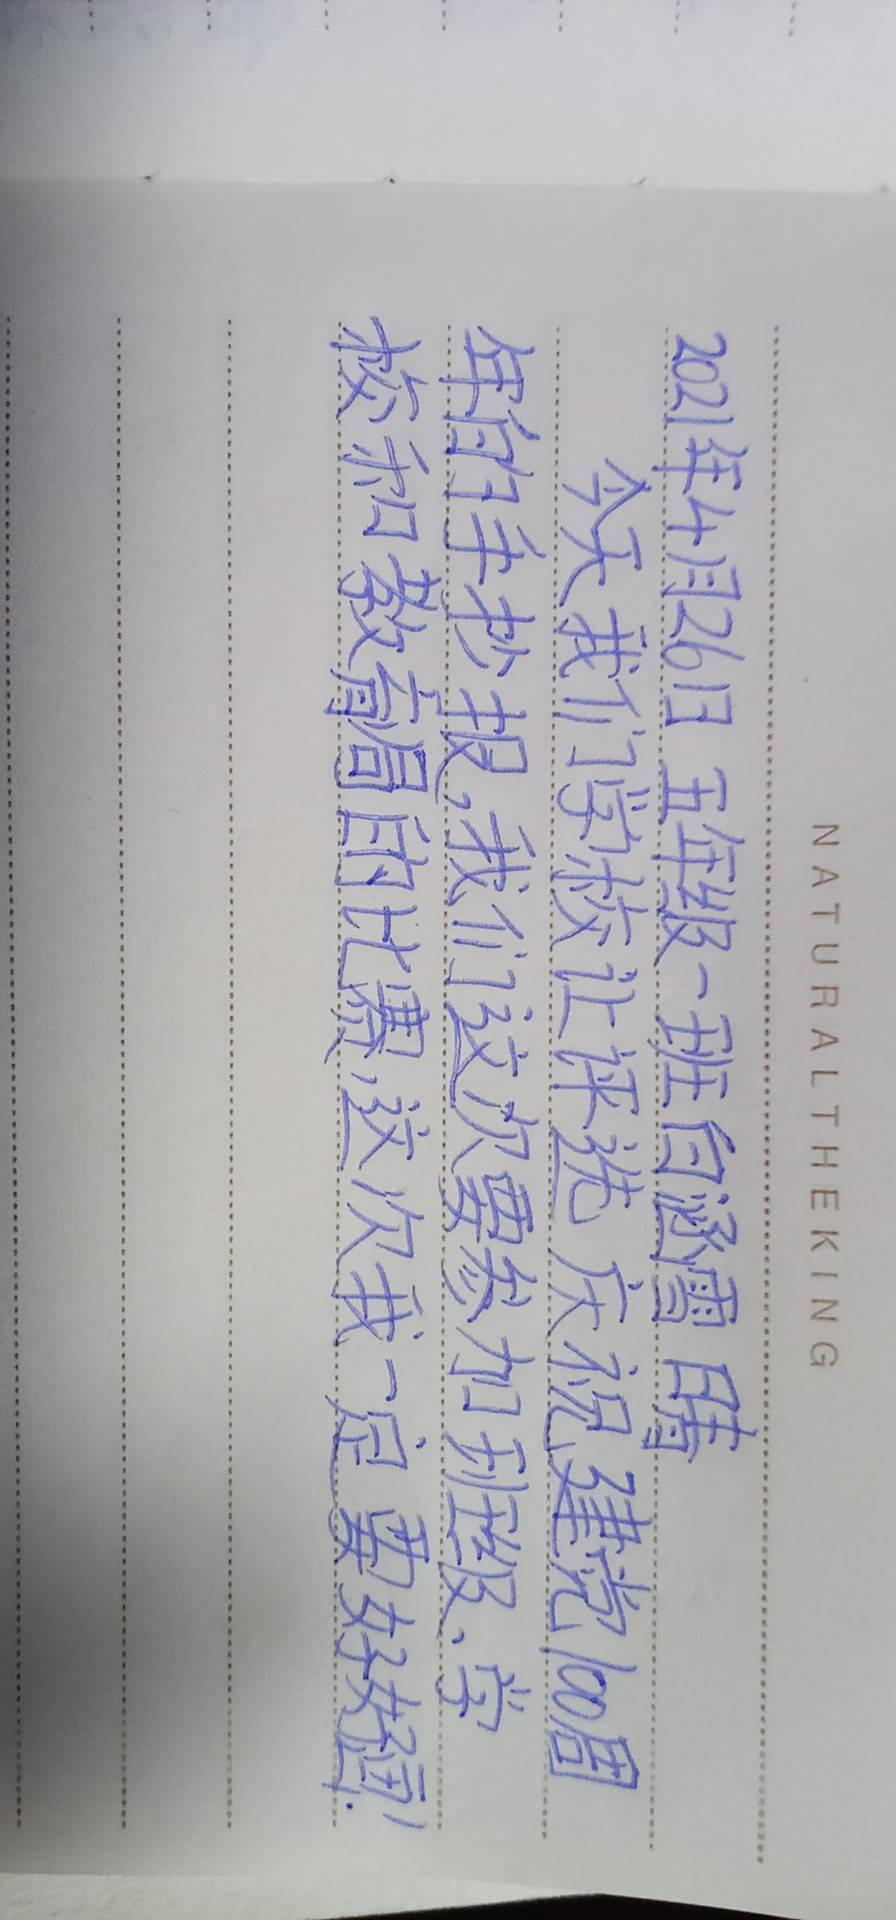 NATURALTHEKING
2021年4月26日 五年级一班白涵雪 晴
今天我们学校让评选 庆祝建党100周
年的手抄报,我们这次要参加班级、学
校和教育局的比赛,这次我一定要好好画!